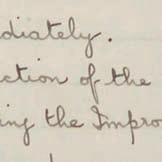 diately.
ction of the
ing the Impro